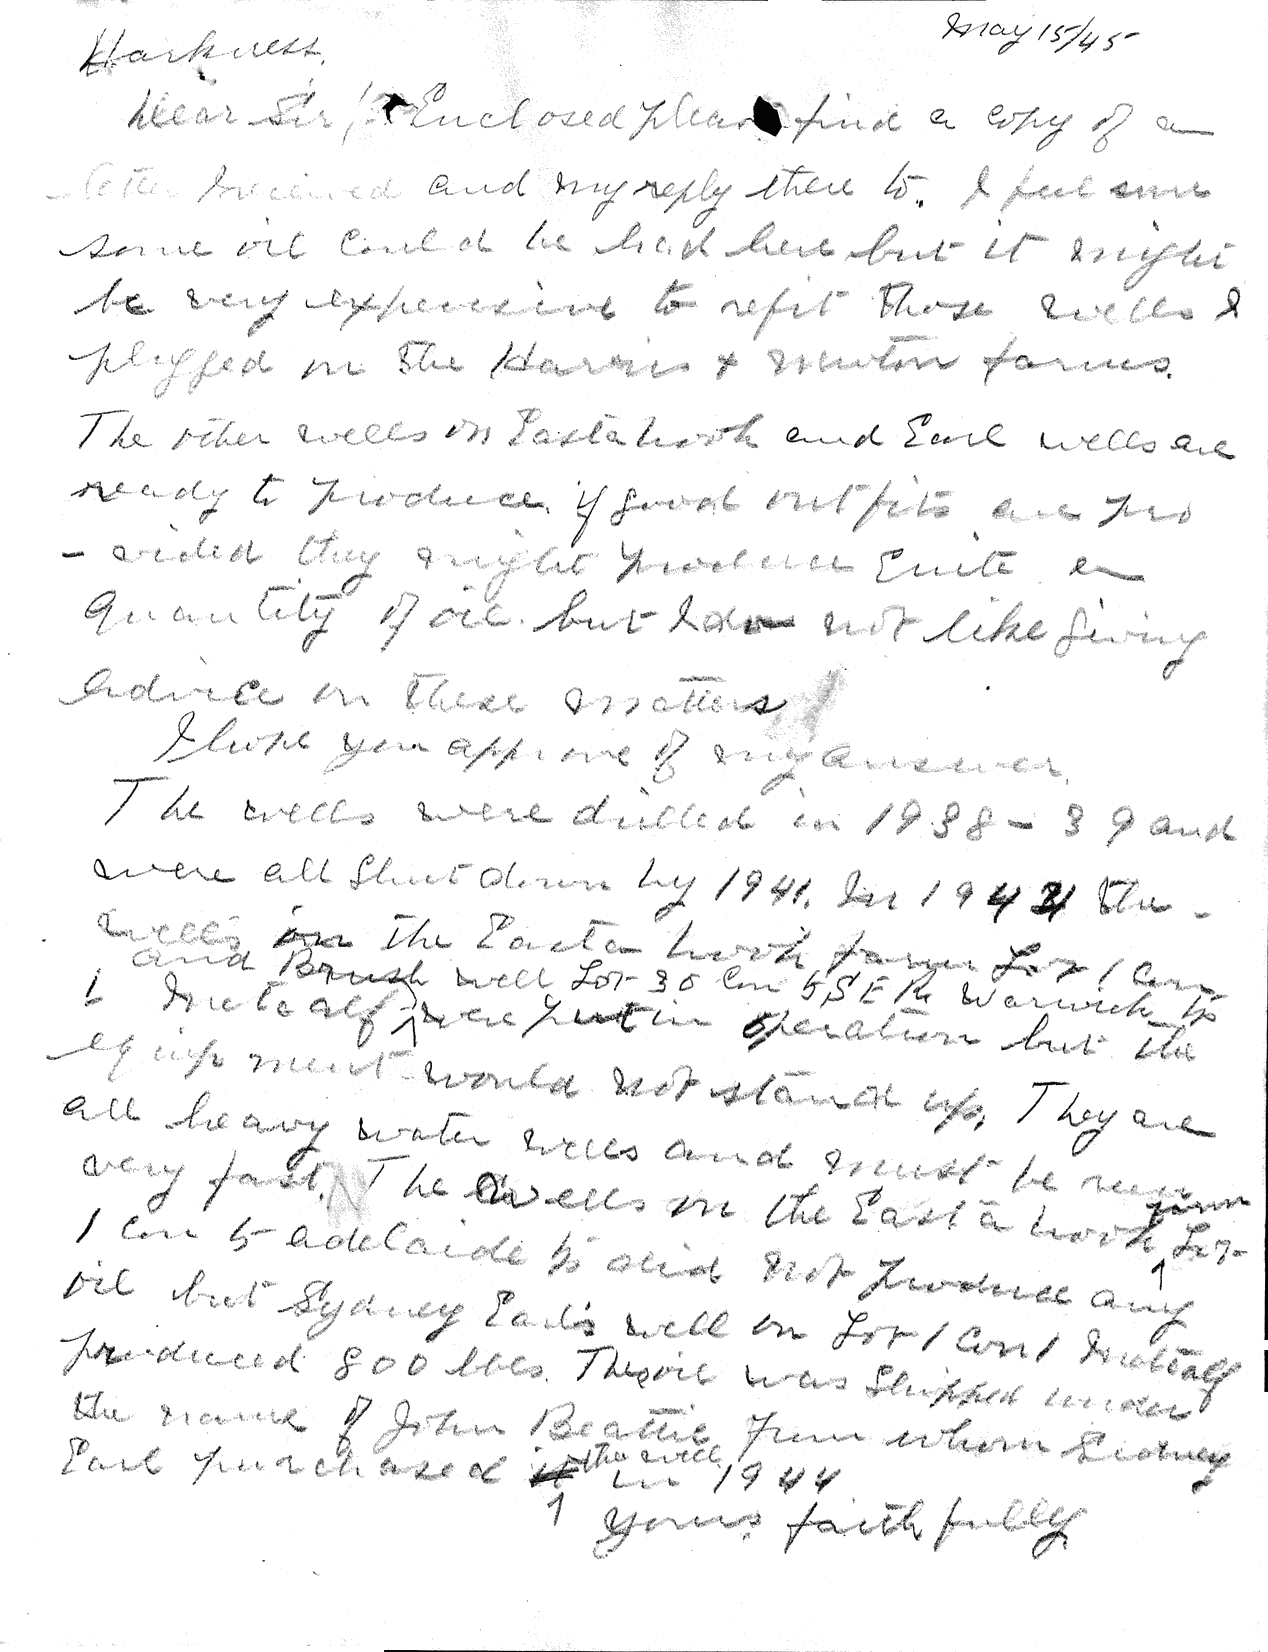 May 15/45
Harkness.
Dear Sir, Enclosed please find a copy of a
letter received and my reply there to. I feel sure
some oil could be had here but it might
be very expensive to refit those wells I
plugged on the Harris & Newton farms.
The other wells on Eastabrook and Earl wells are
ready to produce. if good outfits are pro
- vided they might produce quite a
quantity of oil. but I do not like giving
advice on these matters
I hope you approve of my answer.
The wells were drilled in 1938 - 39 and
were all shut down by 1941. In 194 the
wells on the Eastabrook farm Lot 1 Con
and Brush well Lot 30 Con 5 S E R Warwick Tp
1 Metcalf were put in operation but the
equipment would not stand up. They are
all heavy water wells and must be run
very fast. The wells on the Eastabrook farm Lot
1 Con 5 Adelaide Tp did not produce any
oil but Sydney Earl's well on Lot 1 Con 1 Metcalf
produced 800 bbls. The oil was shipped under
the name of John Beattie from whom Sidney
Earl purchased the well in 1944
Yours faithfully